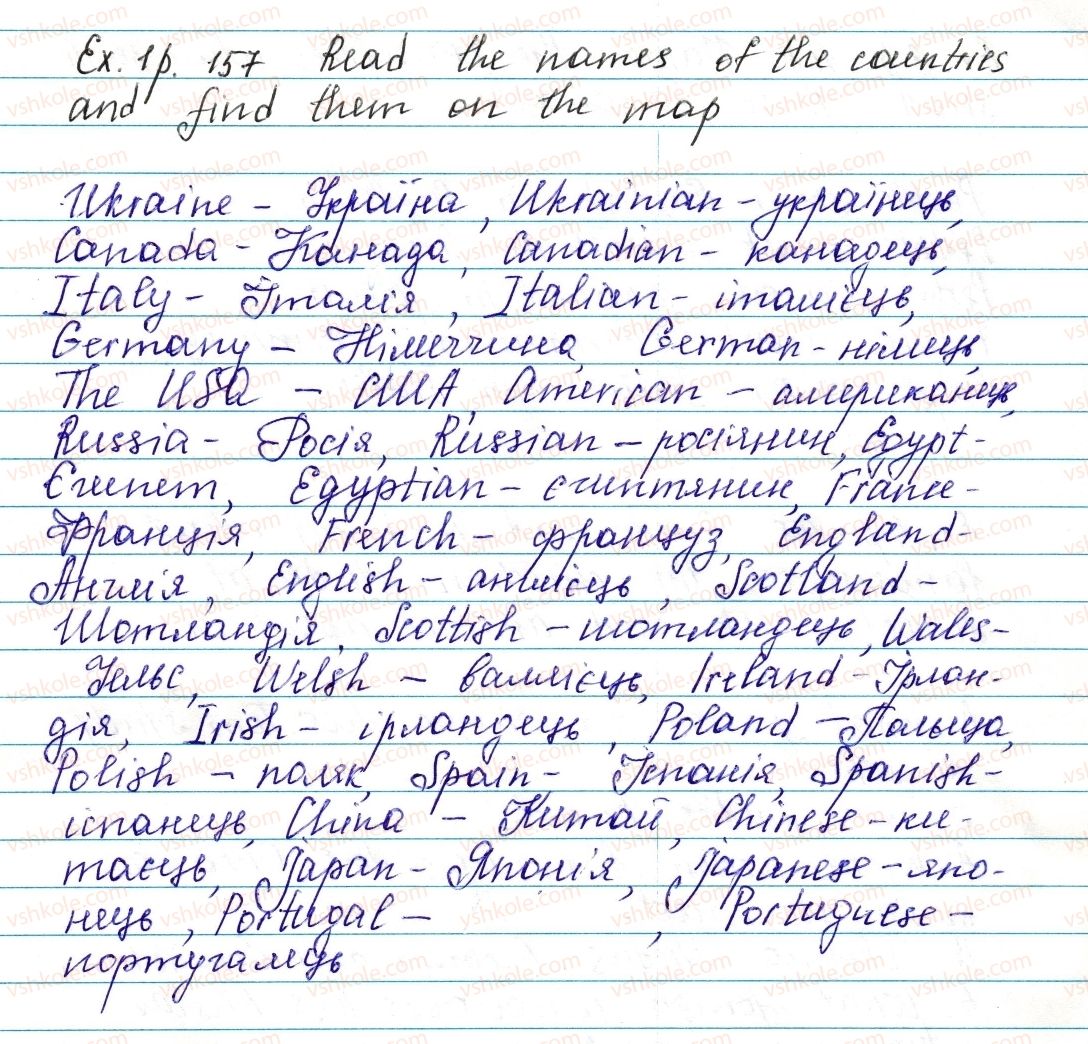 Ex. 1 p. 157 Read the names of the countries
and find them on the map
Ukraine - Україна, Ukrainian - українець,
Canada - Канада, Canadian - канадець,
Italy - Італія, Italian - італієць,
Germany - Німеччина, German - німець,
The USA - США, American - американець,
Russia - Росія, Russian - росіянин, Egypt -
Єгипет, Egyptian - єгиптянин, France -
Франція, French - француз, England -
Англія, English - англієць, Scotland -
Шотландія, Scottish - шотландець, Wales -
Уельс, Welsh - валлієць, Ireland - Ірлан-
дія, Irish - ірландець, Poland - Польща,
Polish - поляк, Spain - Іспанія, Spanish -
іспанець, China - Китай, Chinese - ки-
таєць, Japan - Японія, Japanese - япо-
нець, Portugal - , Portuguese -
португалець